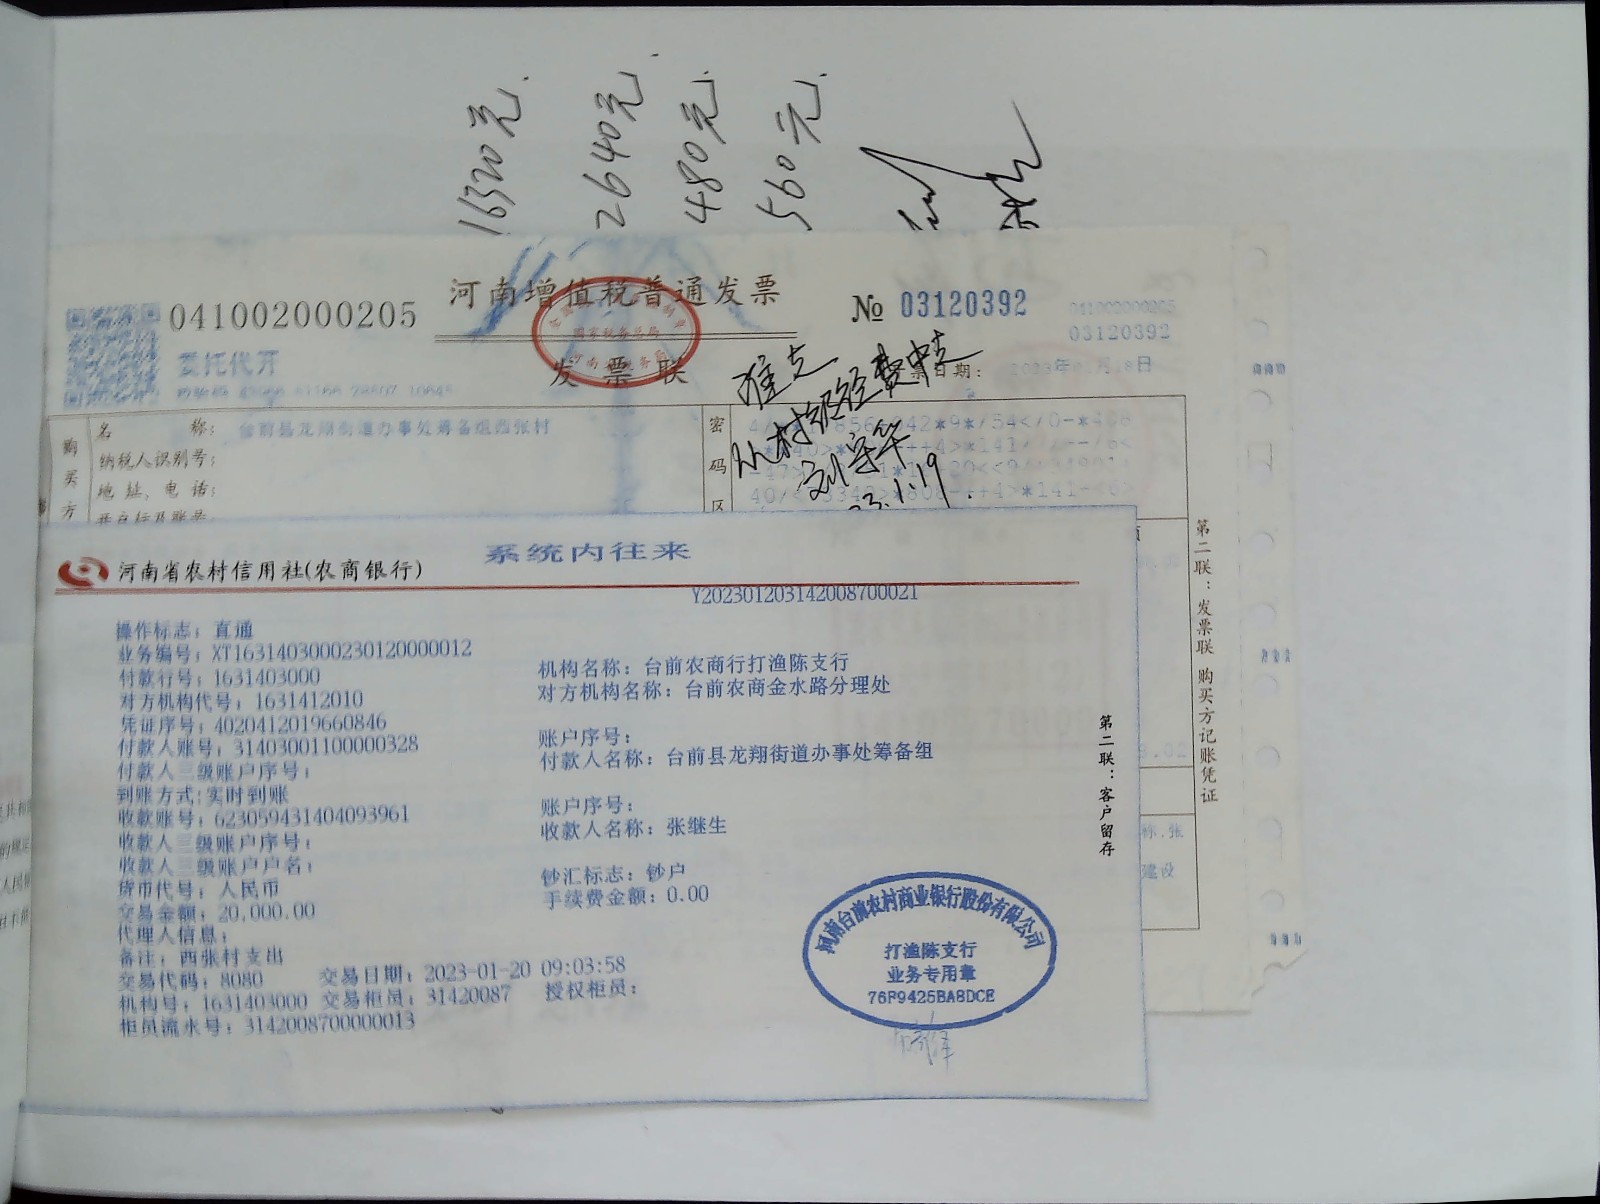 16320元.
2640元.
480元.
560元.
河南增值税普通发票
041002000205
№ 03120392
041002000205
03120392
委托代开
国家税务总局
发票联
准支
从村级经费中支
刘守华
23.1.19
购买方
名 称:
台前县龙翔街道办事处筹备组西张村
纳税人识别号:
地址、电话:
开户行及账号:
密码区
第二联:发票联 购买方记账凭证
河南省农村信用社(农商银行)
系统内往来
Y202301203142008700021
操作标志: 直通
业务编号: XT1631403000230120000012
付款行号: 1631403000
机构名称: 台前农商行打渔陈支行
对方机构代号: 1631412010
对方机构名称: 台前农商金水路分理处
凭证序号: 4020412019660846
付款人账号: 31403001100000328
账户序号:
付款人三级账户序号:
付款人名称: 台前县龙翔街道办事处筹备组
到账方式: 实时到账
收款账号: 623059431404093961
账户序号:
收款人三级账户序号:
收款人名称: 张继生
收款人三级账户户名:
货币代号: 人民币
钞汇标志: 钞户
交易金额: 20,000.00
手续费金额: 0.00
代理人信息:
备注: 西张村支出
交易代码: 8080
交易日期: 2023-01-20 09:03:58
机构号: 1631403000 交易柜员: 31420087
授权柜员:
柜员流水号: 3142008700000013
第二联:客户留存
河南台前农村商业银行股份有限公司
打渔陈支行
业务专用章
76F9425BA8DCE
称,张
建设